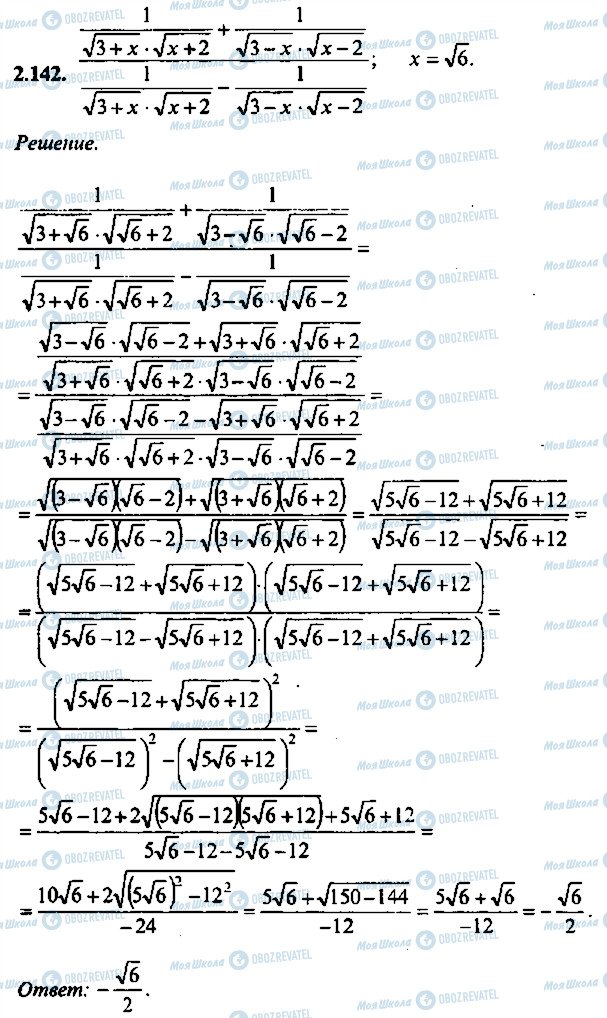 2.142. \frac{\frac{1}{\sqrt{3+x}\cdot\sqrt{x+2}}+\frac{1}{\sqrt{3-x}\cdot\sqrt{x-2}}}{\frac{1}{\sqrt{3+x}\cdot\sqrt{x+2}}-\frac{1}{\sqrt{3-x}\cdot\sqrt{x-2}}}; x=\sqrt{6}.
Решение.
\frac{\frac{1}{\sqrt{3+\sqrt{6}}\cdot\sqrt{\sqrt{6}+2}}+\frac{1}{\sqrt{3-\sqrt{6}}\cdot\sqrt{\sqrt{6}-2}}}{\frac{1}{\sqrt{3+\sqrt{6}}\cdot\sqrt{\sqrt{6}+2}}-\frac{1}{\sqrt{3-\sqrt{6}}\cdot\sqrt{\sqrt{6}-2}}}=
=\frac{\frac{\sqrt{3-\sqrt{6}}\cdot\sqrt{\sqrt{6}-2}+\sqrt{3+\sqrt{6}}\cdot\sqrt{\sqrt{6}+2}}{\sqrt{3+\sqrt{6}}\cdot\sqrt{\sqrt{6}+2}\cdot\sqrt{3-\sqrt{6}}\cdot\sqrt{\sqrt{6}-2}}}{\frac{\sqrt{3-\sqrt{6}}\cdot\sqrt{\sqrt{6}-2}-\sqrt{3+\sqrt{6}}\cdot\sqrt{\sqrt{6}+2}}{\sqrt{3+\sqrt{6}}\cdot\sqrt{\sqrt{6}+2}\cdot\sqrt{3-\sqrt{6}}\cdot\sqrt{\sqrt{6}-2}}}=
=\frac{\sqrt{(3-\sqrt{6})(\sqrt{6}-2)}+\sqrt{(3+\sqrt{6})(\sqrt{6}+2)}}{\sqrt{(3-\sqrt{6})(\sqrt{6}-2)}-\sqrt{(3+\sqrt{6})(\sqrt{6}+2)}}=\frac{\sqrt{5\sqrt{6}-12}+\sqrt{5\sqrt{6}+12}}{\sqrt{5\sqrt{6}-12}-\sqrt{5\sqrt{6}+12}}=
=\frac{(\sqrt{5\sqrt{6}-12}+\sqrt{5\sqrt{6}+12})\cdot(\sqrt{5\sqrt{6}-12}+\sqrt{5\sqrt{6}+12})}{(\sqrt{5\sqrt{6}-12}-\sqrt{5\sqrt{6}+12})\cdot(\sqrt{5\sqrt{6}-12}+\sqrt{5\sqrt{6}+12})}=
=\frac{(\sqrt{5\sqrt{6}-12}+\sqrt{5\sqrt{6}+12})^2}{(\sqrt{5\sqrt{6}-12})^2-(\sqrt{5\sqrt{6}+12})^2}=
=\frac{5\sqrt{6}-12+2\sqrt{(5\sqrt{6}-12)(5\sqrt{6}+12)}+5\sqrt{6}+12}{5\sqrt{6}-12-5\sqrt{6}-12}=
=\frac{10\sqrt{6}+2\sqrt{(5\sqrt{6})^2-12^2}}{-24}=\frac{5\sqrt{6}+\sqrt{150-144}}{-12}=\frac{5\sqrt{6}+\sqrt{6}}{-12}=-\frac{\sqrt{6}}{2}.
Ответ: -\frac{\sqrt{6}}{2}.
Моя Школа OBOZREVATEL